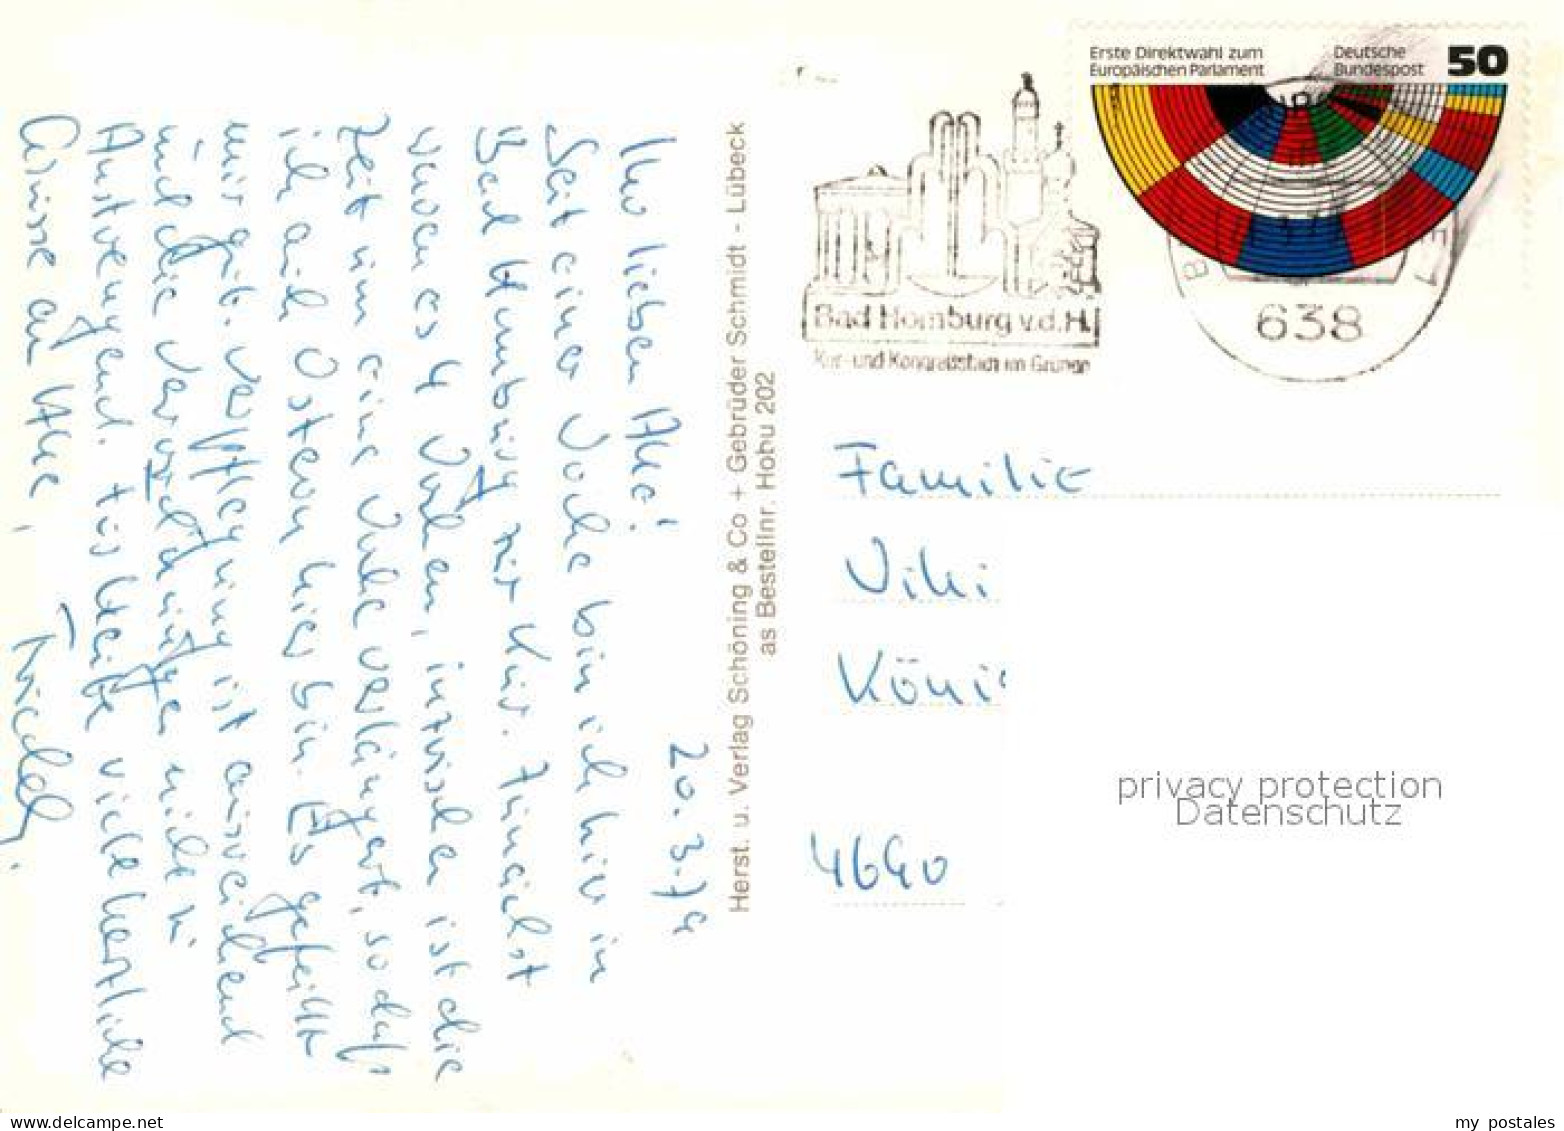 20.3.79
Ihr lieben Alle!
Seit einer Woche bin ich hier in
Bad Homburg zur Kur. Zunächst
waren es 4 Wochen, inzwischen ist die
Zeit um eine Woche verlängert, so daß
ich auch Ostern hier bin. Es gefällt
mir gut. Verpflegung ist ausreichend
und die Anwendungen nicht zu
Anstrengend. Für Heute viele herzliche
Grüsse an Alle,
Friedel.
Herst. u. Verlag Schöning & Co + Gebrüder Schmidt - Lübeck
as Bestellnr. Hobu 202
Erste Direktwahl zum
Europäischen Parlament
Deutsche
Bundespost
50
Bad Homburg v.d.H.
Kur- und Kongreßstadt im Grünen
638
Familie
Köni
4690
privacy protection
Datenschutz
my postales